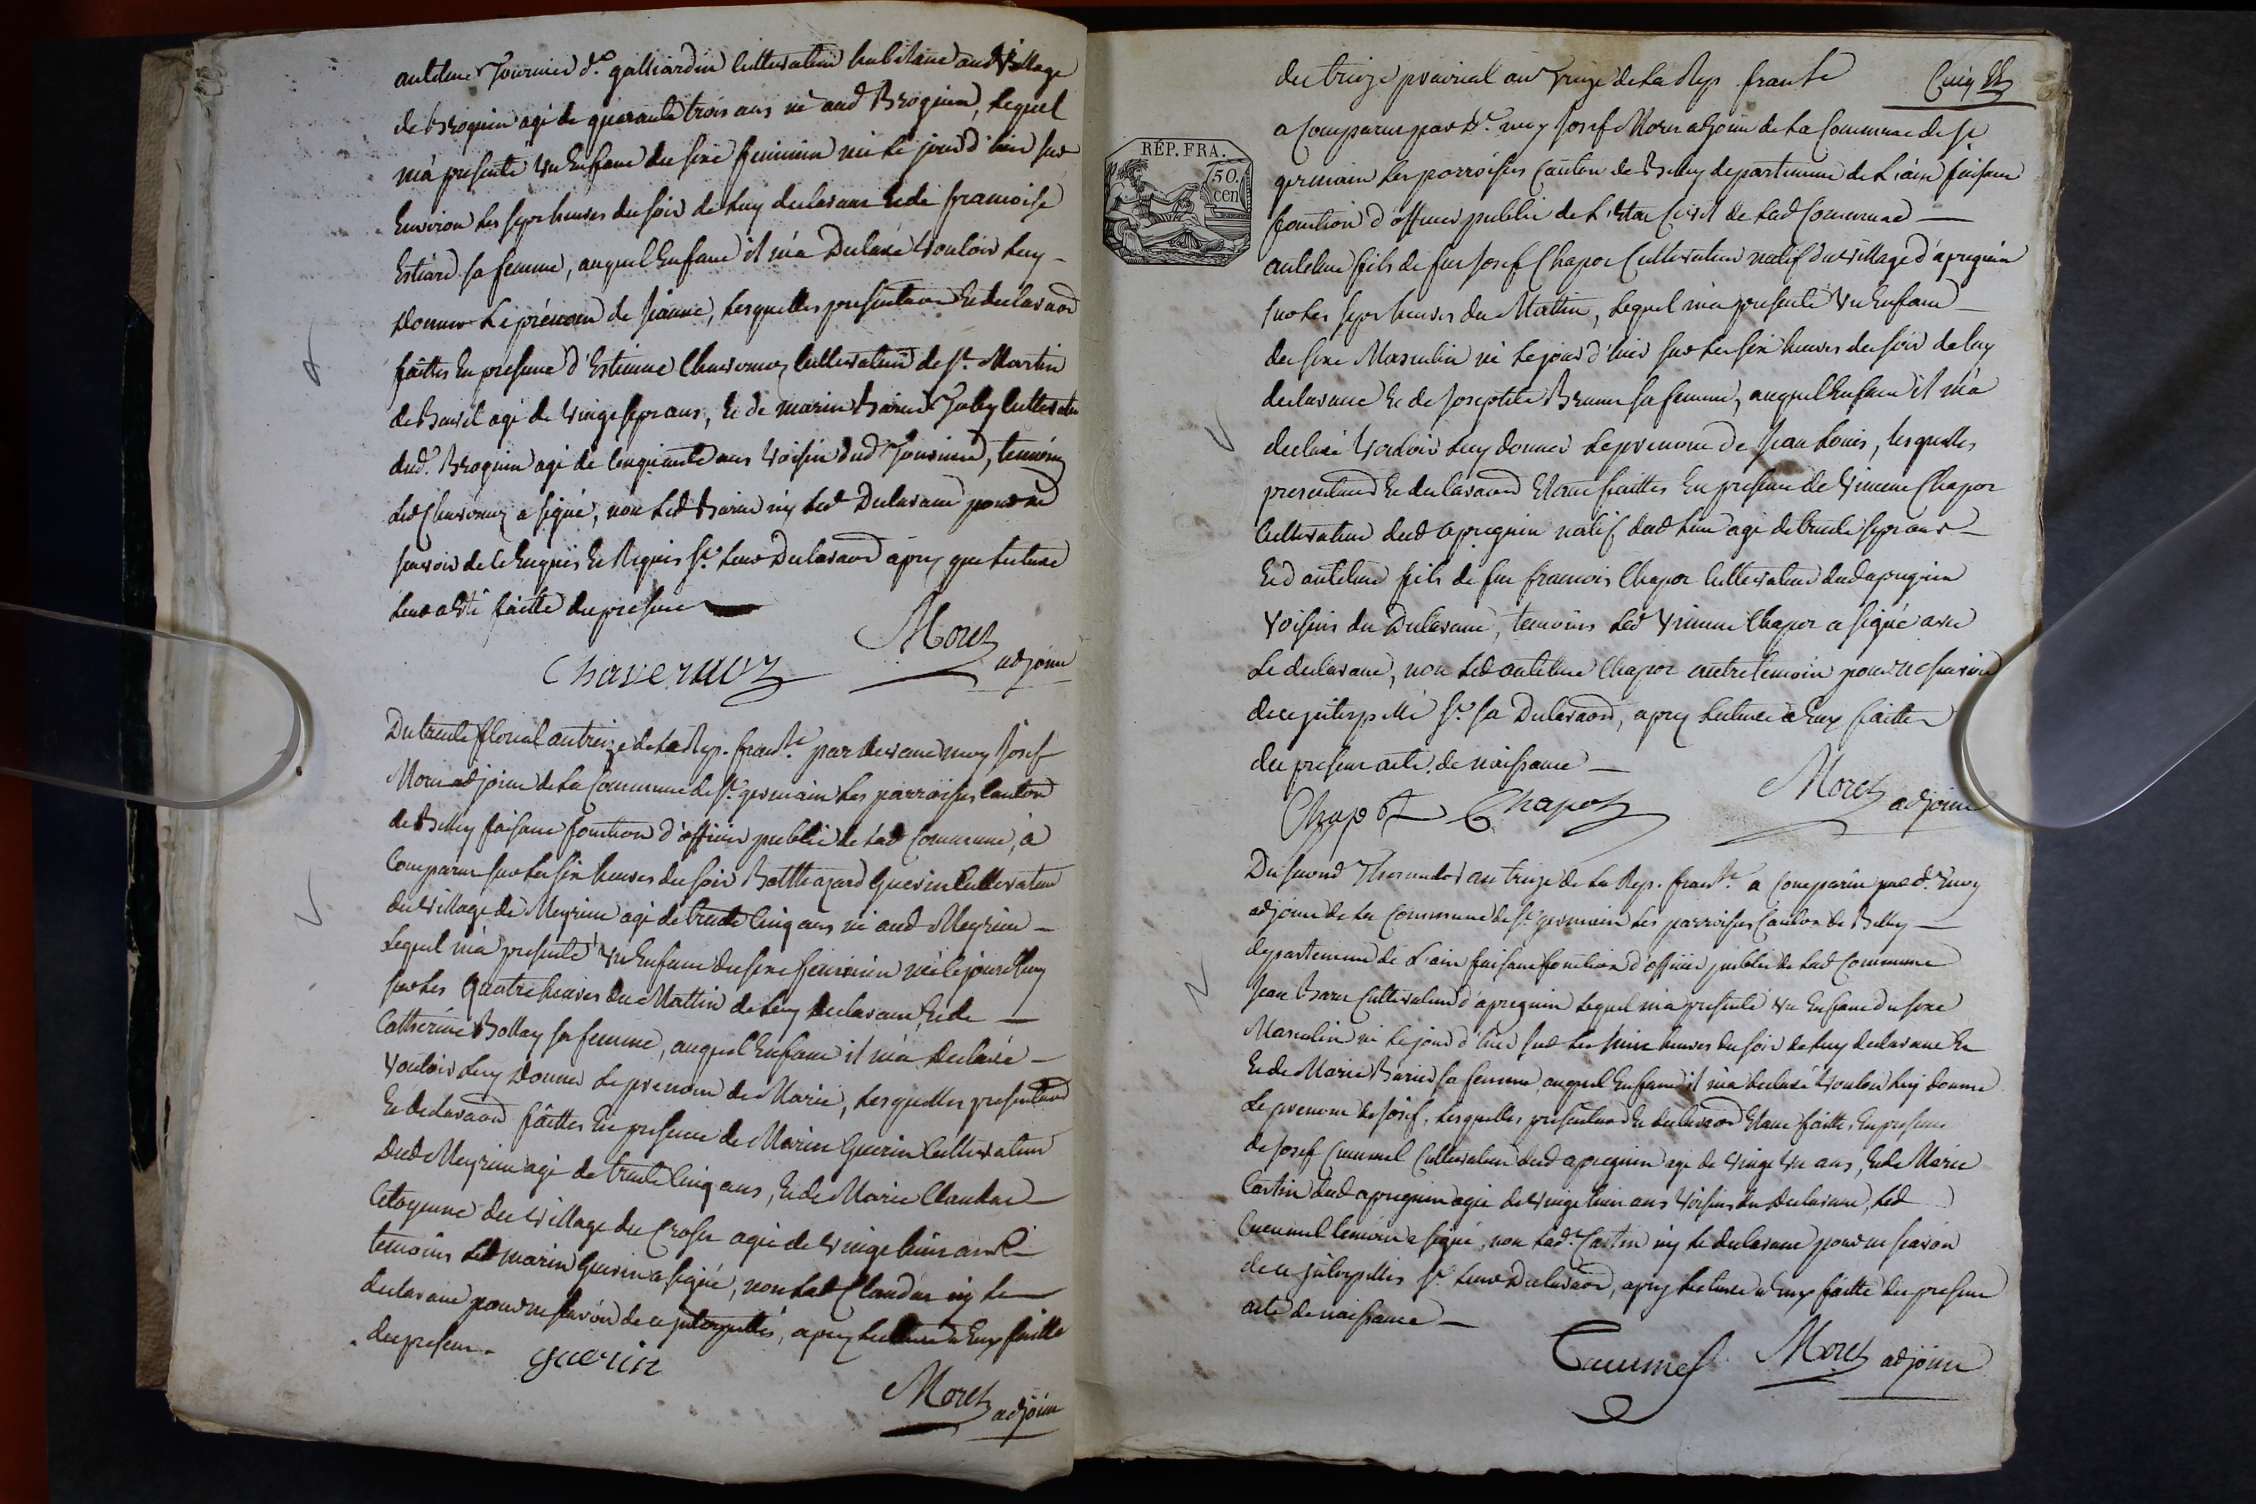 antelme fournier d.t galliardin cultivateur habitant aud Village
de Brognin agé de quarante trois ans né aud Brognin, lequel
m'a presenté un Enfant du sexe feminin né le jour d'hier sur
Environ les sept heures du soir de luy declarant et de francoise
sa femme, auquel Enfant il m'a Declaré vouloir luy
donner Le prénom de jeanne, lesquelles presentation Et declaraon
faittes En presence d'Estienne Chavornoz cultivateur de st. Martin
de Bavel agé de vingt sept ans, Et de marin cultivateur
dud. Brognin agé de cinquante ans voisin dud fournier, temoins
led Chavornoz a signé, non led ny led Declarant pour ne
scavoir de ce Enquis Et Requis st. leur Declaraon aprez que lecture
leur a été faitte du presens
Moret
Chavernoz adjoint
Du trente floreal an treize de la Rep. franse. par devant moy josef
Moret adjoint de la Commune de st. germain les parroisses canton
de Belley faisant fonction d'officier public de lad Commune, a
Comparu sur les six heures du soir Balthazard Guerin Cultivateur
du village de Meyrieu agé de trente Cinq ans né aud Meyrieu
Lequel m'a presenté un Enfant du sexe feminin né le jourdhuy
sur les quatre heures du Mattin de luy declarant Et de
Catherine Bollay sa femme, auquel Enfant il m'a declaré
vouloir luy donner Le prenom de Marie, lesquelles presentaon
Et declaraon faittes En presence de Marin Guerin Cultivateur
dud Meyrieu agé de trente Cinq ans, Et de Marie Claudar
Citoyenne du village du agée de vingt huit ans
temoins led marin Guerin a signé, non lad Claudar ny le
declarant pour ne scavoir de ce interpellés, aprez lecture a Eux faitte
du presens.
guerin
Moret adjoint
RÉP. FRA.
50. cen
du treize prairial an treize de la Rep. franse Cinq
a Comparu par dt. moy josef Moret adjoint de la Commune de st
germain les parroisses Canton de Belley departement de L'ain faisant
fonction d'officier public de L'Etat Civil de lad Commune
antelme fils de feu josef Chapot Cultivateur natif du village d'apregnin
sur les sept heures du Mattin, lequel m'a presenté un Enfant
du sexe Masculin né le jour d'hier sur les six heures du soir de luy
declarant Et de josephte Brunet sa femme, auquel Enfant il m'a
declaré vouloir luy donner Le prenom de jean Louis, lesquelles
presentaon Et declaraon Etant faittes En presence de vincent Chapot
Cultivateur dud apregnin natif dud lieu agé de trente sept ans
Et d'antelme fils de feu francois Chapot Cultivateur dud apregnin
voisins du Declarant, temoins led vincent Chapot a signé avec
Le declarant, non led antelme Chapot autre temoin pour ne scavoir
de ce interpellé st. sa Declaraon, aprez lecture a Eux faitte
du presens acte de naissance
Chapot Chapot Moret adjoint
Du second Thermidor an treize de la Rep. franse. a Comparu par d. moy
adjoint de la Commune de st. germain les parroisses Canton de Belley
departement de L'ain faisant fonction d'officier public de lad Commune
jean Cultivateur d'apregnin lequel m'a presenté un Enfant du sexe
Masculin né le jour d'hier sur les huit heures du soir de luy declarant Et
Et de Marie sa femme, auquel Enfant il m'a declaré vouloir luy donner
Le prenom de josef, lesquelles presentaon Et declaraon Etant faittes En presence
de josef Cultivateur dud apregnin agé de vingt un ans, Et de Marie
Castin dud apregnin agée de vingt huit ans voisins du Declarant, led
temoin a signé, non lad. Castin ny le declarant pour ne scavoir
de ce interpellés st. leur Declaraon, aprez lecture a Eux faitte du presens
acte de naissance
Moret adjoint